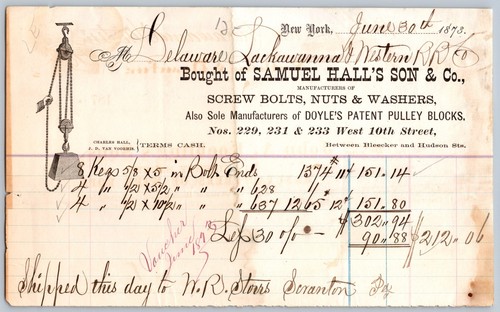 New York, June 30th 1873.
M Delaware Lackawanna & Western R R Co
Bought of SAMUEL HALL'S SON & Co.,
MANUFACTURERS OF
SCREW BOLTS, NUTS & WASHERS,
Also Sole Manufacturers of DOYLE'S PATENT PULLEY BLOCKS.
Nos. 229, 231 & 233 West 10th Street,
CHARLES HALL,
J. D. VAN VOORHIS.
TERMS CASH.
Between Bleecker and Hudson Sts.
8 Kegs 5/8 x 5 in Bolt Ends 1374# 11 151.14
4 " 1/2 x 5 1/2 " " " 628
4 " 1/2 x 10 1/2 " " " 637 1265# 12 151.80
302.94
Less 30 % — 90.88 $212.06
Voucher
June 1873
Shipped this day to W. R. Storrs Scranton Pa